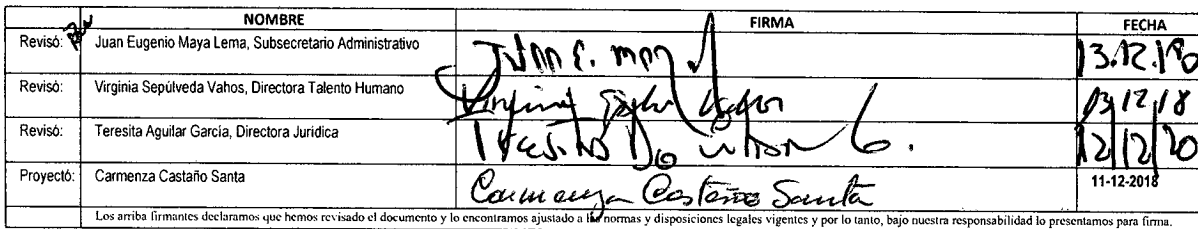 NOMBRE FIRMA FECHA
Revisó: Juan Eugenio Maya Lema, Subsecretario Administrativo Juan E. May 13.12.18
Revisó: Virginia Sepúlveda Vahos, Directora Talento Humano Virginia 13/12/18
Revisó: Teresita Aguilar García, Directora Jurídica 12/12/20
Proyectó: Carmenza Castaño Santa Carmenza Castaño Santa 11-12-2018
Los arriba firmantes declaramos que hemos revisado el documento y lo encontramos ajustado a las normas y disposiciones legales vigentes y por lo tanto, bajo nuestra responsabilidad lo presentamos para firma.